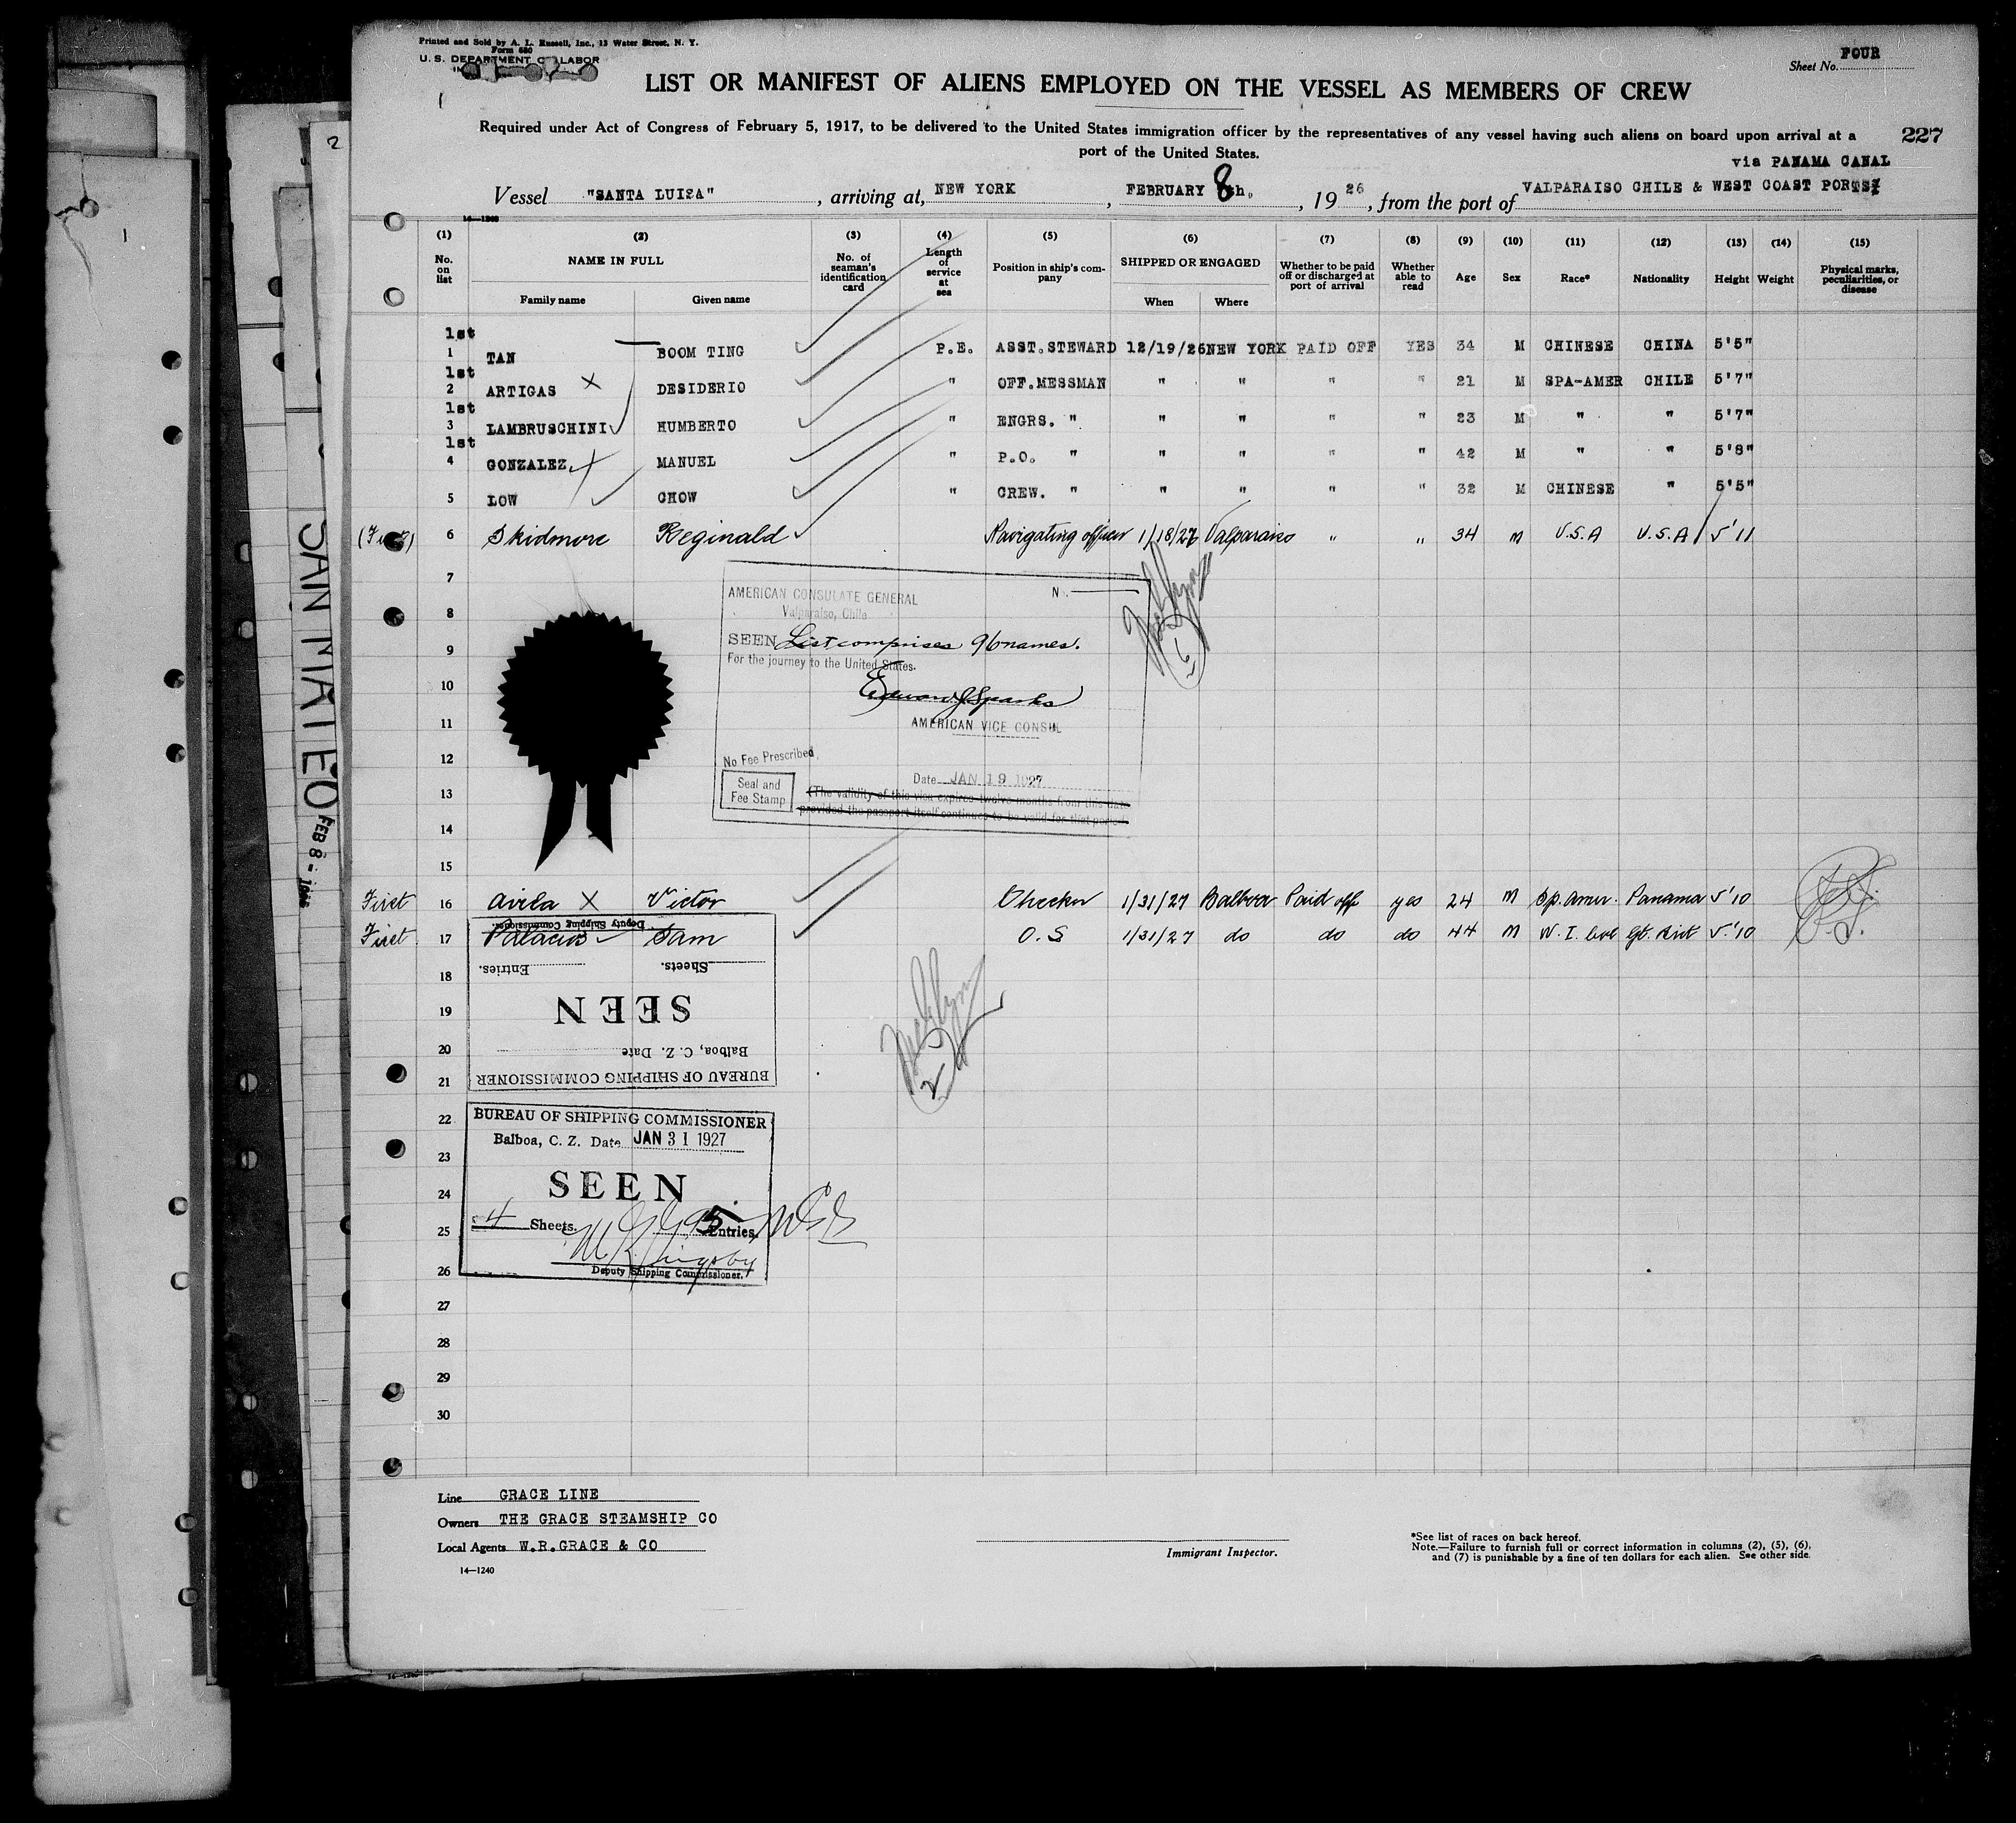 Printed and Sold by A. L. Russell, Inc., 13 Water Street, N. Y.
Form 680
U. S. DEPARTMENT OF LABOR
Sheet No. FOUR
LIST OR MANIFEST OF ALIENS EMPLOYED ON THE VESSEL AS MEMBERS OF CREW
Required under Act of Congress of February 5, 1917, to be delivered to the United States immigration officer by the representatives of any vessel having such aliens on board upon arrival at a
port of the United States.
227
via PANAMA CANAL
Vessel "SANTA LUISA", arriving at, NEW YORK, FEBRUARY 8th, 1926, from the port of VALPARAISO CHILE & WEST COAST PORTS
14—1240
(1) (2) (3) (4) (5) (6) (7) (8) (9) (10) (11) (12) (13) (14) (15)
No. on list NAME IN FULL Family name Given name No. of seaman's identification card Length of service at sea Position in ship's company SHIPPED OR ENGAGED When Where Whether to be paid off or discharged at port of arrival Whether able to read Age Sex Race* Nationality Height Weight Physical marks, peculiarities, or disease
1st 1 TAN BOOM TING P.E. ASST.STEWARD 12/19/26 NEW YORK PAID OFF YES 34 M CHINESE CHINA 5'5"
1st 2 ARTIGAS X DESIDERIO " OFF.MESSMAN " " " " 21 M SPA-AMER CHILE 5'7"
1st 3 LAMBRUSCHINI HUMBERTO " ENGRS. " " " " " 23 M " " 5'7"
1st 4 GONZALEZ MANUEL " P.O. " " " " " 42 M " " 5'8"
5 LOW CHOW " CREW. " " " " " 32 M CHINESE " 5'5"
6 Skidmore Reginald Navigating officer 1/18/27 Valparaiso " " 34 m U.S.A U.S.A 5'11
7
8
9
10
11
12
13
14
15
AMERICAN CONSULATE GENERAL
Valparaiso, Chile
SEEN List comprises 96 names.
For the journey to the United States.
Edward J Sparks
AMERICAN VICE CONSUL
No Fee Prescribed
Date JAN 19 1927
Seal and
Fee Stamp
(The validity of this visa expires twelve months from this date
provided the passport itself continues to be valid for that period.
First 16 Avila X Victor Checker 1/31/27 Balboa Paid off yes 24 m Sp. Amer. Panama 5'10
First 17 Palacios Sam O.S 1/31/27 do do do 44 m W. I. 5'10
18
19
20
21
Deputy Shipping Commissioner.
Sheets. Entries.
SEEN
Balboa, C. Z. Date
BUREAU OF SHIPPING COMMISSIONER
22
23
24
25
26
27
28
29
30
BUREAU OF SHIPPING COMMISSIONER
Balboa, C. Z. Date JAN 31 1927
SEEN
4 Sheets. 95 Entries.
Deputy Shipping Commissioner.
Line GRACE LINE
Owners THE GRACE STEAMSHIP CO
Local Agents W.R.GRACE & CO
14—1240
Immigrant Inspector.
*See list of races on back hereof.
Note.—Failure to furnish full or correct information in columns (2), (5), (6),
and (7) is punishable by a fine of ten dollars for each alien. See other side.
SAN MATEO
FEB 8 -
2